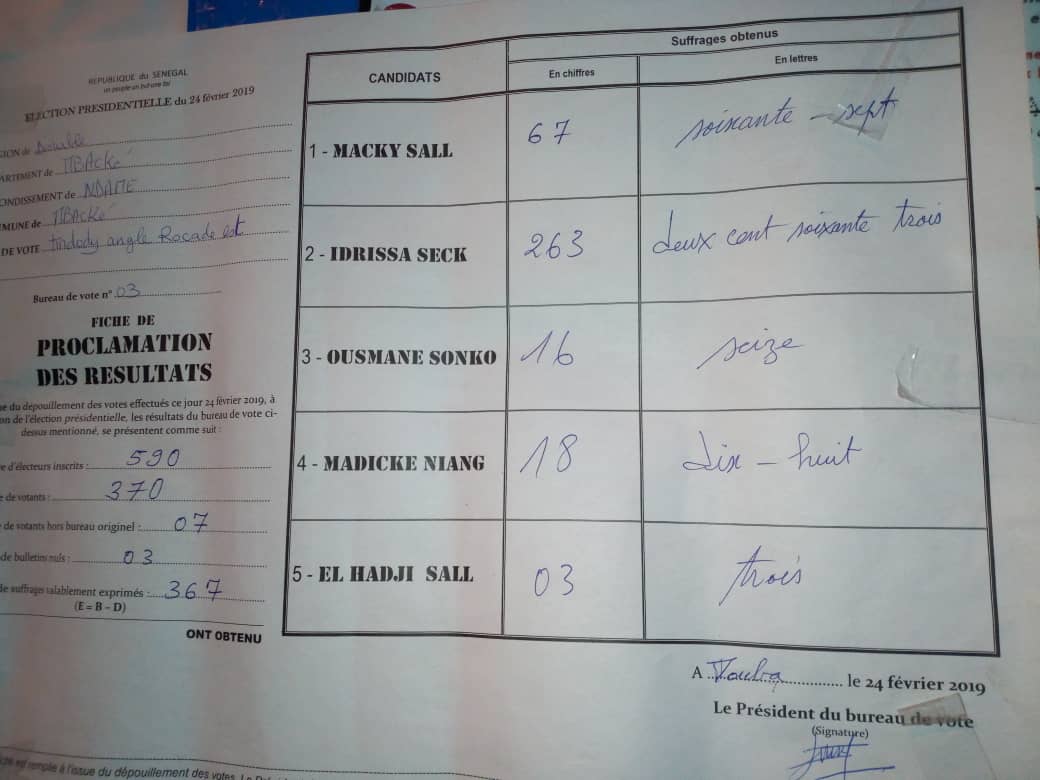 REPUBLIQUE du SENEGAL
un peuple un but une foi
ELECTION PRESIDENTIELLE du 24 février 2019
GION de Diourbel
ARTEMENT de MBACKé
ONDISSEMENT de NDAME
MUNE de MBACKé
DE VOTE angle Rocade est
Bureau de vote n° 03
FICHE DE
PROCLAMATION
DES RESULTATS
ue du dépouillement des votes effectués ce jour 24 février 2019, à
on de l'élection présidentielle, les résultats du bureau de vote ci-
dessus mentionné, se présentent comme suit :
e d'électeurs inscrits : 590
e de votants : 370
de votants hors bureau originel : 07
de bulletins nuls : 03
de suffrages valablement exprimés : 367
(E = B – D)
ONT OBTENU
CANDIDATS
Suffrages obtenus
En chiffres
En lettres
1 - MACKY SALL 67 soixante - sept
2 - IDRISSA SECK 263 deux cent soixante trois
3 - OUSMANE SONKO 16 seize
4 - MADICKE NIANG 18 dix - huit
5 - EL HADJI SALL 03 trois
A Touba le 24 février 2019
Le Président du bureau de vote
(Signature)
est remplie à l'issue du dépouillement des votes.